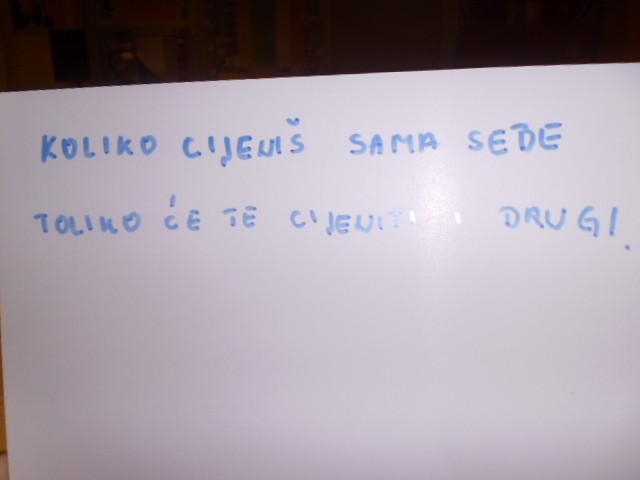 KOLIKO CIJENIŠ SAMA SEBE
TOLIKO ĆE TE CIJENITI I DRUGI.